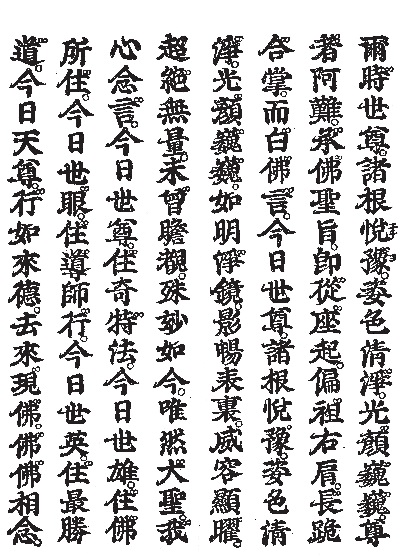 爾時世尊諸根悅豫姿色清淨光顏巍巍尊
者阿難承佛聖旨即從座起偏袒右肩長跪
合掌而白佛言今日世尊諸根悅豫姿色清
淨光顏巍巍如明淨鏡影暢表裏威容顯曜
超絕無量未曾瞻覩殊妙如今唯然大聖我
心念言今日世尊住奇特法今日世雄住佛
所住今日世眼住導師行今日世英住最勝
道今日天尊行如來德去來現佛佛佛相念